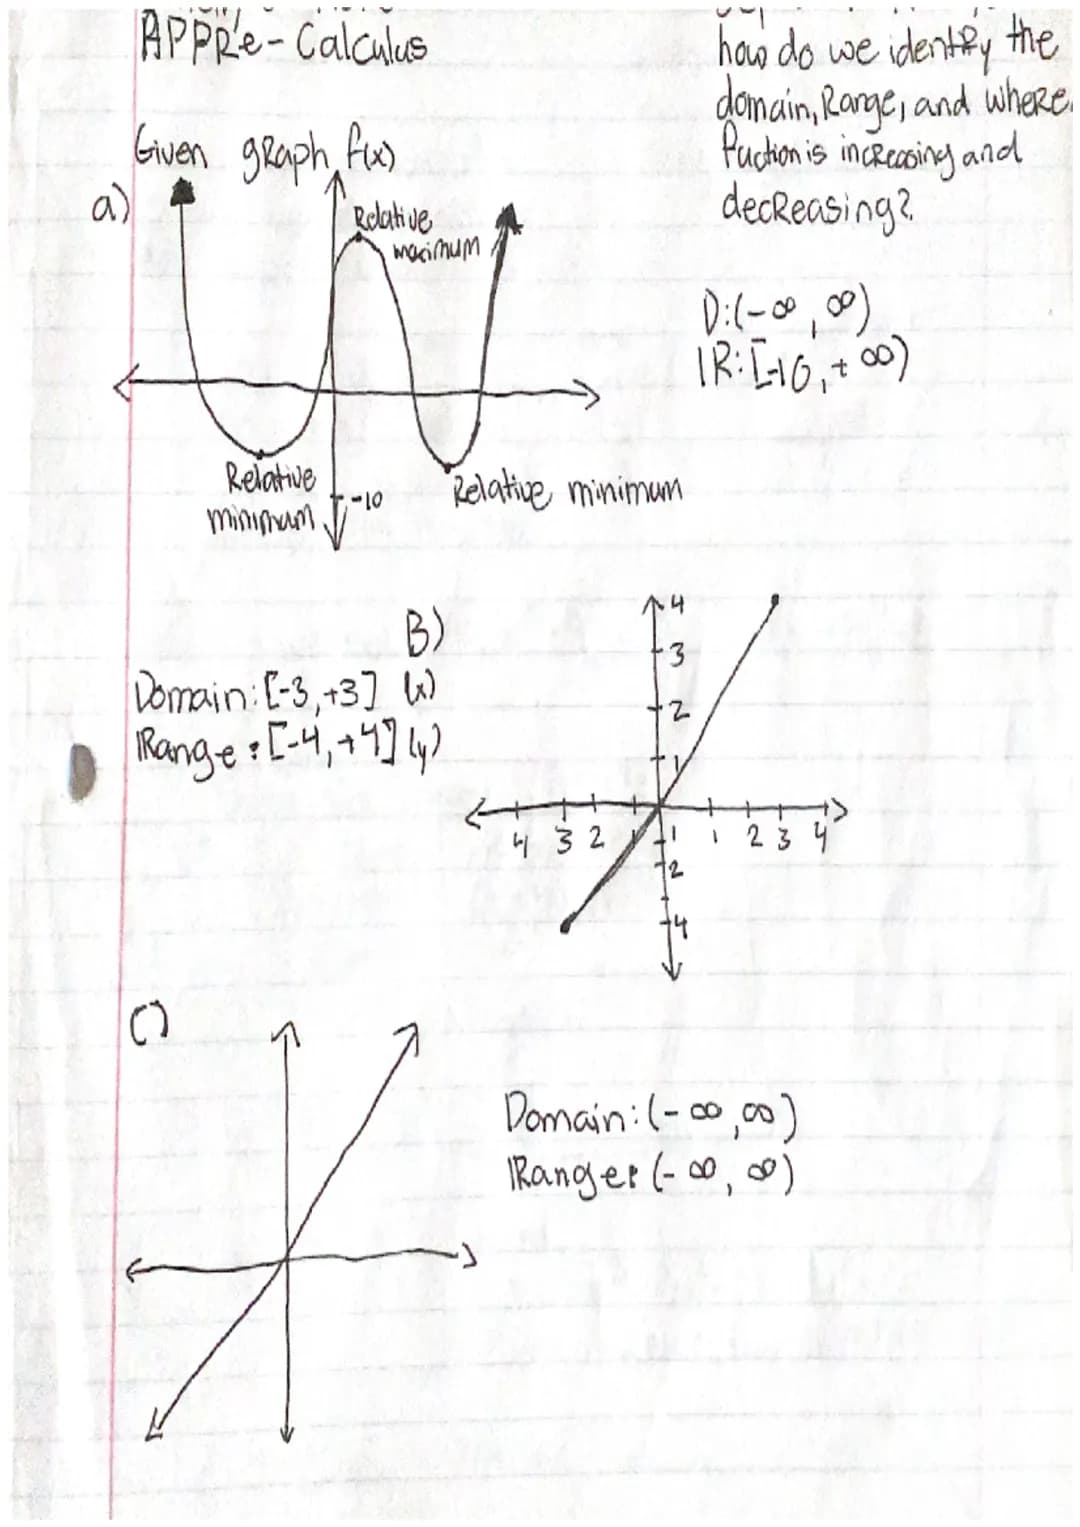 APPRe-Calculus
how do we identify the
domain, Range, and where
fuction is increasing and
decreasing?
Given graph f(x)
a)
Relative
maximum
D:(-∞, ∞)
IR:[-10,+ ∞)
Relative
minimum
-10
Relative minimum
B)
Domain:[-3,+3] (x)
Range:[-4,+4] (y)
4
3
2
1
4 3 2 1 1 2 3 4
2
4
C)
Domain:(-∞,∞)
Range:(-∞, ∞)